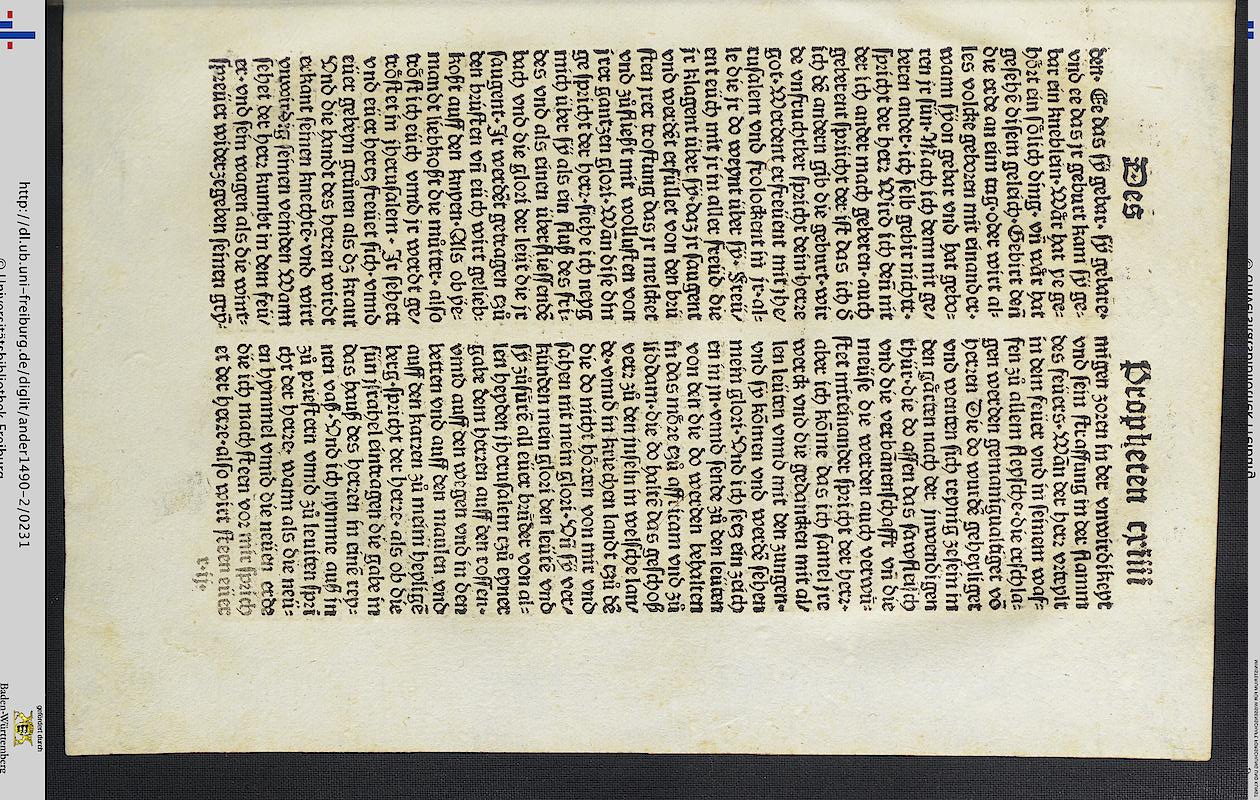 Des Propheten cxiiij
den. Ee das sÿ gebar. sÿ gebare.
vnd ee das jr geburt kam sÿ ge-
bar ein kneblein. Wår hat ye ge-
hört ein sölich ding. vñ wår hat
gesehē disem geleich. Gebirt deñ
die erde an eim tag. oder wirt al-
les volcke geboren mit einander.
wann syon gebar vnd hat gebo-
ren jr sün. Mach ich denn mit ge/
beren ander. ich selb gebir nichte.
spricht der herr Wird ich deñ nit
der ich ander mach geberen. auch
geberent spricht der. ist das ich d̄
ich dē andern gib die geburt. wir
de vnfruchtber spricht dein herre
got. Werdent erfreüent mit jhe/
rusalem vnd frolockent in jr. al-
le die jr do weÿnt über sÿ. Freü/
ent eüch mit jr in aller freüd die
jr klagent über sÿ. daz jr saugent
vnd werdēt erfüllet von den brü
sten jrer trostung das jr melcket
vnd züfließt mit wollusten von
jrer gantzen glori. Wan dise din
ge spricht der herr. siehe ich neyg
mich über sÿ als ein fluß des fri-
des vnd als einen überfliessendē
bach vnd die glori der leüt die jr
saugent. Jr werdēt getragen czü
den brüsten vñ eüch wirt gelieb-
koßt auff den knyen. Als ob ye-
mandt liebkoßt die müter. also
tröst ich eüch vnnd jr werdt ge/
tröstet in jherusalem. Jr sehett
vnd eüer hertz freüet sich. vnnd
eüer gebeyn grünen als dz kraut
Vnd die handt des herren wirdt
erkant seinen knechtē. vnd wirt
vnwirdig seinen veinden Wann
sehet der herr kumbt in dem feü/
er. vnd sein wagen als die wint-
speüer widerzegeben seinen grÿ-
migen zoren in der vnwirdikeyt
vnd sein straffung in der flamm
des feuers. Wan der herr vrteylt
in dem feuer vnd in seinem waf-
fen zü allem fleysche. die erschla-
gen werden gemanigualtiget vō
herren Die do wurdē geheyliget
vnd wenten sich reynig zesein in
den gärten nach der inwendigen
thür. die do assen das sawfleisch
vnd die verbannenschafft vñ die
meüse die wurden auch verwü-
stet miteinander spricht der herr.
aber ich köme das ich samel jre
werck vnd die gedancken mit al/
len leuten vnnd mit den zungen.
vnd sÿ kömen vnd werdē sehen
mein glori. Vnd ich secz ein zeich
en in jn. vnnd sende zü den leüten
von den die do werden behalten
in das möre czü affricam vnd zü
liddam. die do halte das geschoß
verr zü den jnseln in welsche lan/
de. vnnd in kriechen landt czü dē
die do nicht hörten von mir vnd
sahen nit mein glori. Vñ sÿ ver/
künden mein glori den leütē vnd
sÿ züfürē all eüer brüder von al-
len heyden jherusalem czü eyner
gabe dem herren auff den rossen.
vnnd auff den wegen vnd in den
betten vnd auff den maulen vnd
auff den karren zü meim heyligē
berg. spricht der herre. als ob die
sün jsrahel eintragen die gabe in
das hauß des herren in eine rey-
nen vaß. Vnd ich nymme auß in
zü priestern vnnd zü leuiten spri
cht der herre. wann als die neü-
en hymmel vnnd die neüen erde
die ich mach steen vor mir sprich
et der herre. also wirt steen eüer
r. ij.
http://dl.ub.uni-freiburg.de/diglit/ander1490-2/0231
© Universitätsbibliothek Freiburg
gefördert durch
Baden-Württemberg